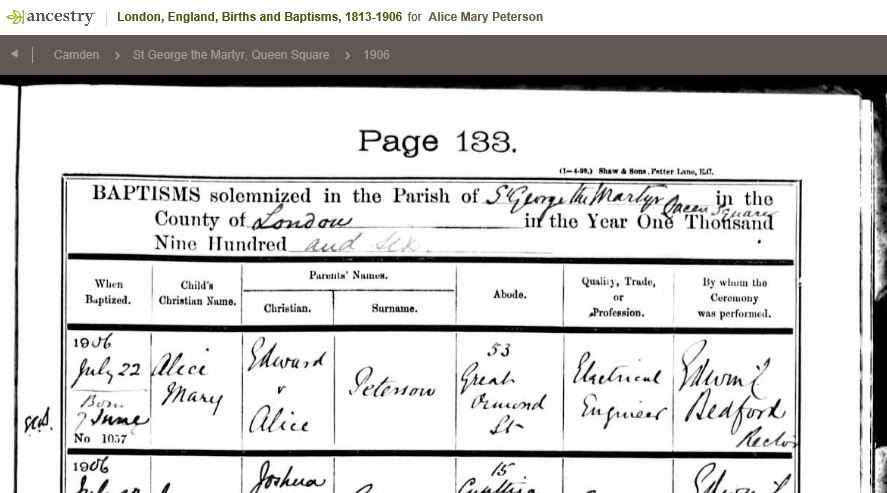 ancestry London, England, Births and Baptisms, 1813-1906 for Alice Mary Peterson
Camden > St George the Martyr, Queen Square > 1906
Page 133.
(1-4-98.) Shaw & Sons, Fetter Lane, E.C.
BAPTISMS solemnized in the Parish of St George the Martyr Queen Square in the
County of London in the Year One Thousand
Nine Hundred and six.
When Baptized.
Child's Christian Name.
Parents' Names.
Christian.
Surname.
Abode.
Quality, Trade, or Profession.
By whom the Ceremony was performed.
1906
July 22
Born
7 June
No 1057
Alice
Mary
Edward
&
Alice
Peterson
53
Great
Ormond
St
Electrical
Engineer
Edwin
Bedford
Rector
1906
July
Joshua
15